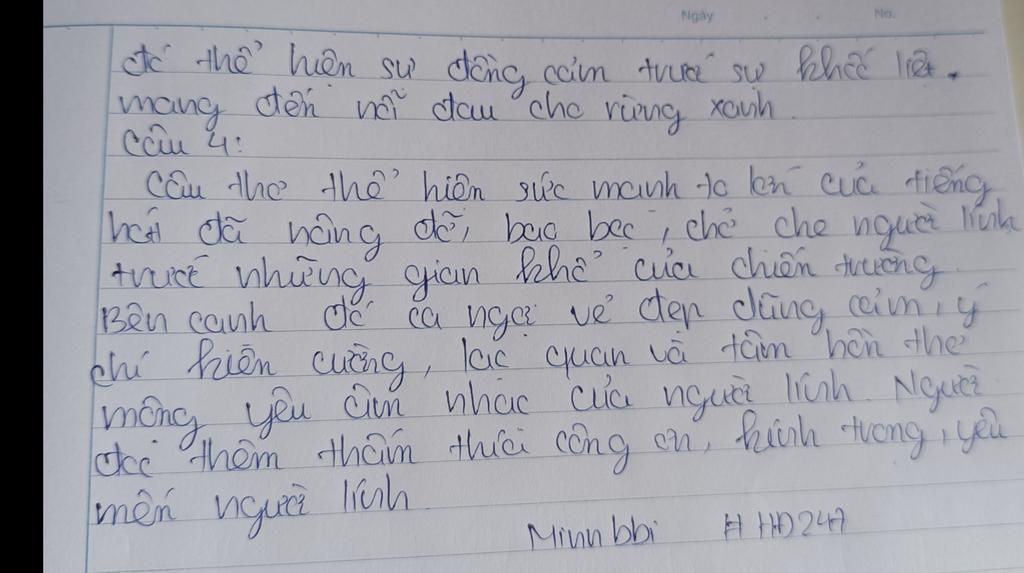 Ngày No.
đó thể hiện sự đồng cảm trước sự khốc liệt.
mang đến nỗi đau cho rừng xanh.
Câu 4:
Câu thơ thể hiện sức mạnh to lớn của tiếng
hát đã nâng đỡ, bao bọc, chở che người lính
trước những gian khổ của chiến trường.
Bên cạnh đó ca ngợi vẻ đẹp dũng cảm, ý
chí kiên cường, lạc quan và tâm hồn thơ
mộng yêu âm nhạc của người lính. Người
đọc thêm thấm thía công ơn, kính trọng, yêu
mến người lính
Minn bbi # HD247